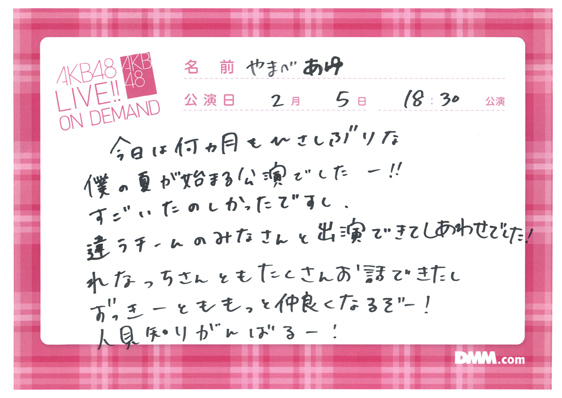 AKB48
LIVE!!
ON DEMAND
AKB
48
名前 やまべあゆ
公演日 2月 5日 18:30 公演
今日は何ヵ月もひさしぶりな
僕の夏が始まる公演でしたー!!
すごいたのしかったですし、
違うチームのみなさんと出演できてしあわせでした!
れなっちさんともたくさんお話できたし
ずっきーとももっと仲良くなるぞー!
人見知りがんばるー!
DMM.com